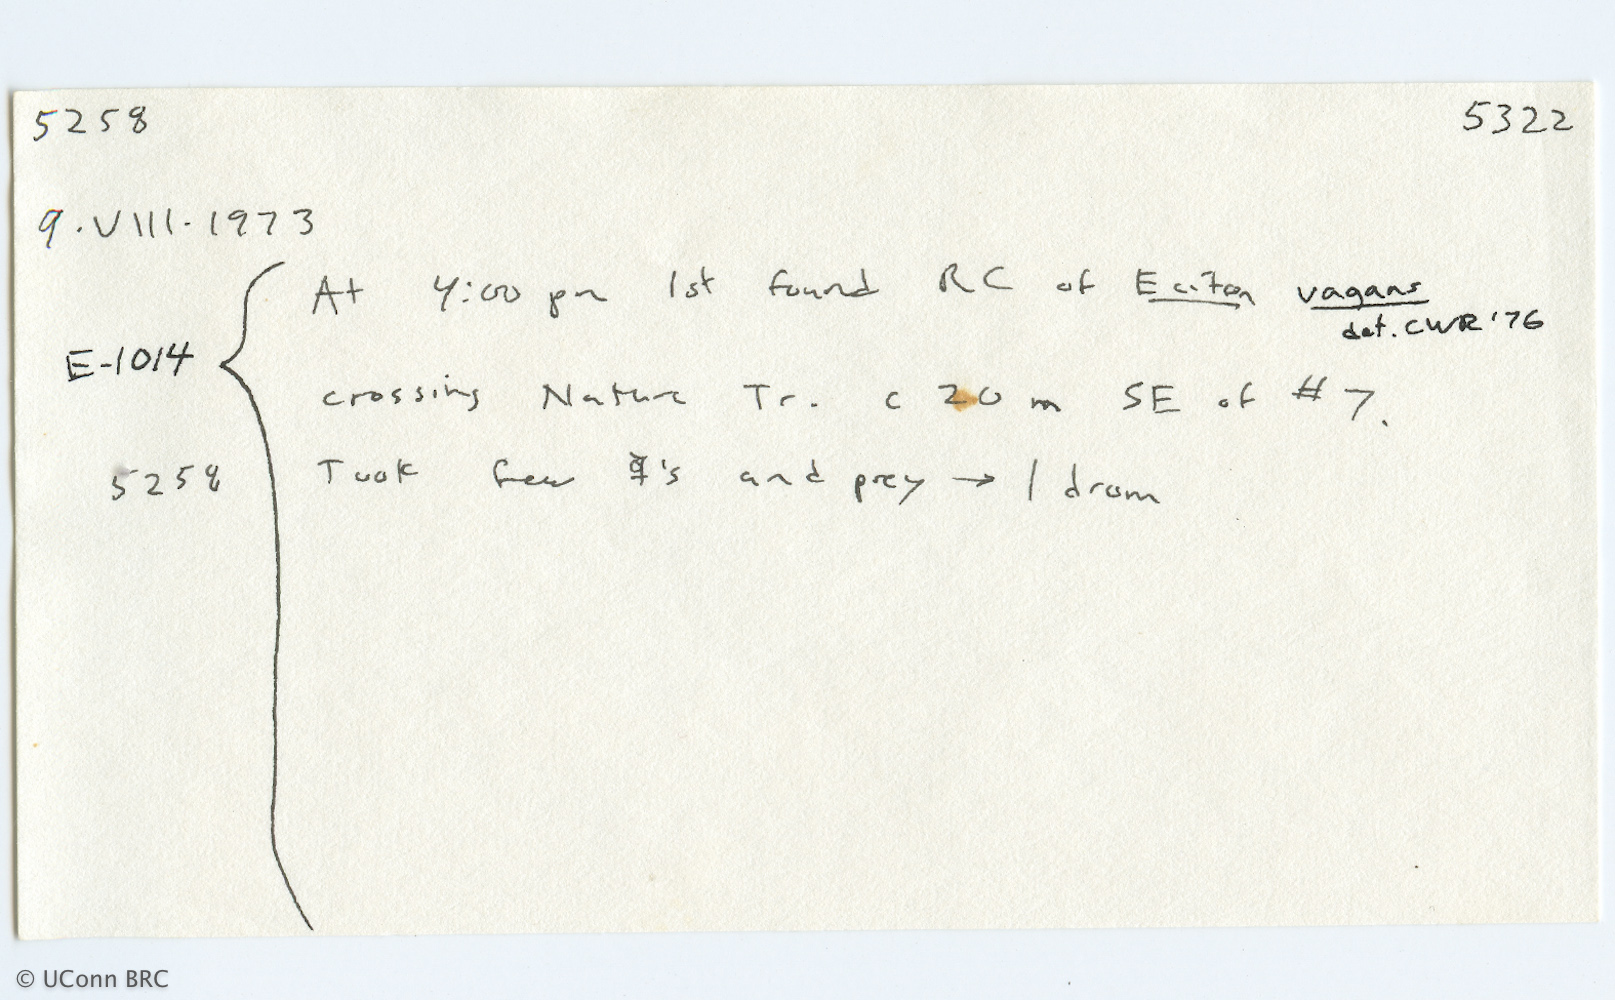 5258 5322
9.VIII.1973
At 4:00 pm 1st found RC of Eciton vagans
det. CWR '76
E-1014
crossing Nature Tr. c 20 m SE of #7.
5258 Took few ☿'s and prey → 1 dram
© UConn BRC